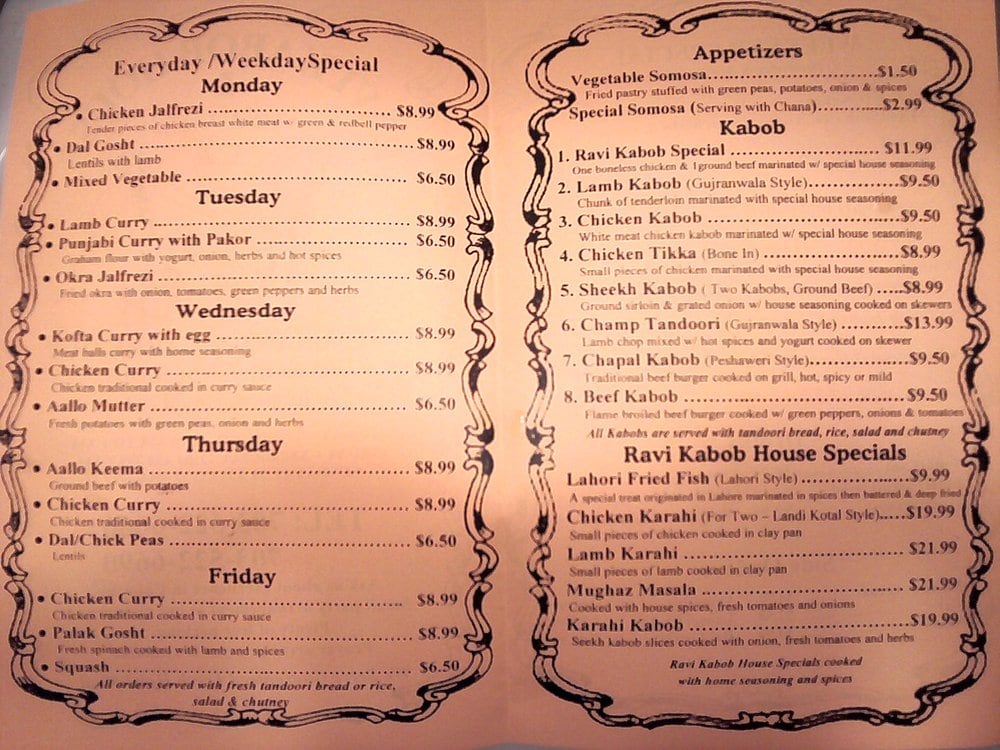 Everyday /WeekdaySpecial
Monday
• Chicken Jalfrezi ........................................ $8.99
Tender pieces of chicken breast white meat w/ green & redbell pepper
• Dal Gosht .................................................. $8.99
Lentils with lamb
• Mixed Vegetable ........................................ $6.50
Tuesday
• Lamb Curry ................................................ $8.99
• Punjabi Curry with Pakor ........................... $6.50
Graham flour with yogurt, onion, herbs and hot spices
• Okra Jalfrezi .............................................. $6.50
Fried okra with onion, tomatoes, green peppers and herbs
Wednesday
• Kofta Curry with egg ................................... $8.99
Meat balls curry with home seasoning
• Chicken Curry ............................................. $8.99
Chicken traditional cooked in curry sauce
• Aallo Mutter ............................................... $6.50
Fresh potatoes with green peas, onion and herbs
Thursday
• Aallo Keema ............................................... $8.99
Ground beef with potatoes
• Chicken Curry ............................................. $8.99
Chicken traditional cooked in curry sauce
• Dal/Chick Peas ........................................... $6.50
Lentils
Friday
• Chicken Curry ............................................. $8.99
Chicken traditional cooked in curry sauce
• Palak Gosht ................................................ $8.99
Fresh spinach cooked with lamb and spices
• Squash ....................................................... $6.50
All orders served with fresh tandoori bread or rice,
salad & chutney
Appetizers
Vegetable Somosa.......................................$1.50
Fried pastry stuffed with green peas, potatoes, onion & spices
Special Somosa (Serving with Chana)..............$2.99
Kabob
1. Ravi Kabob Special .................................. $11.99
One boneless chicken & 1ground beef marinated w/ special house seasoning
2. Lamb Kabob (Gujranwala Style)..................$9.50
Chunk of tenderloin marinated with special house seasoning
3. Chicken Kabob .........................................$9.50
White meat chicken kabob marinated w/ special house seasoning
4. Chicken Tikka (Bone In) ............................$8.99
Small pieces of chicken marinated with special house seasoning
5. Sheekh Kabob ( Two Kabobs, Ground Beef) .....$8.99
Ground sirloin & grated onion w/ house seasoning cooked on skewers
6. Champ Tandoori (Gujranwala Style) ............$13.99
Lamb chop mixed w/ hot spices and yogurt cooked on skewer
7. Chapal Kabob (Peshaweri Style)..................$9.50
Traditional beef burger cooked on grill, hot, spicy or mild
8. Beef Kabob ..............................................$9.50
Flame broiled beef burger cooked w/ green peppers, onions & tomatoes
All Kabobs are served with tandoori bread, rice, salad and chutney
Ravi Kabob House Specials
Lahori Fried Fish (Lahori Style) ......................$9.99
A special treat originated in Lahore marinated in spices then battered & deep fried
Chicken Karahi (For Two – Landi Kotal Style).....$19.99
Small pieces of chicken cooked in clay pan
Lamb Karahi ............................................. $21.99
Small pieces of lamb cooked in clay pan
Mughaz Masala .......................................... $21.99
Cooked with house spices, fresh tomatoes and onions
Karahi Kabob .............................................$19.99
Seekh kabob slices cooked with onion, fresh tomatoes and herbs
Ravi Kabob House Specials cooked
with home seasoning and spices